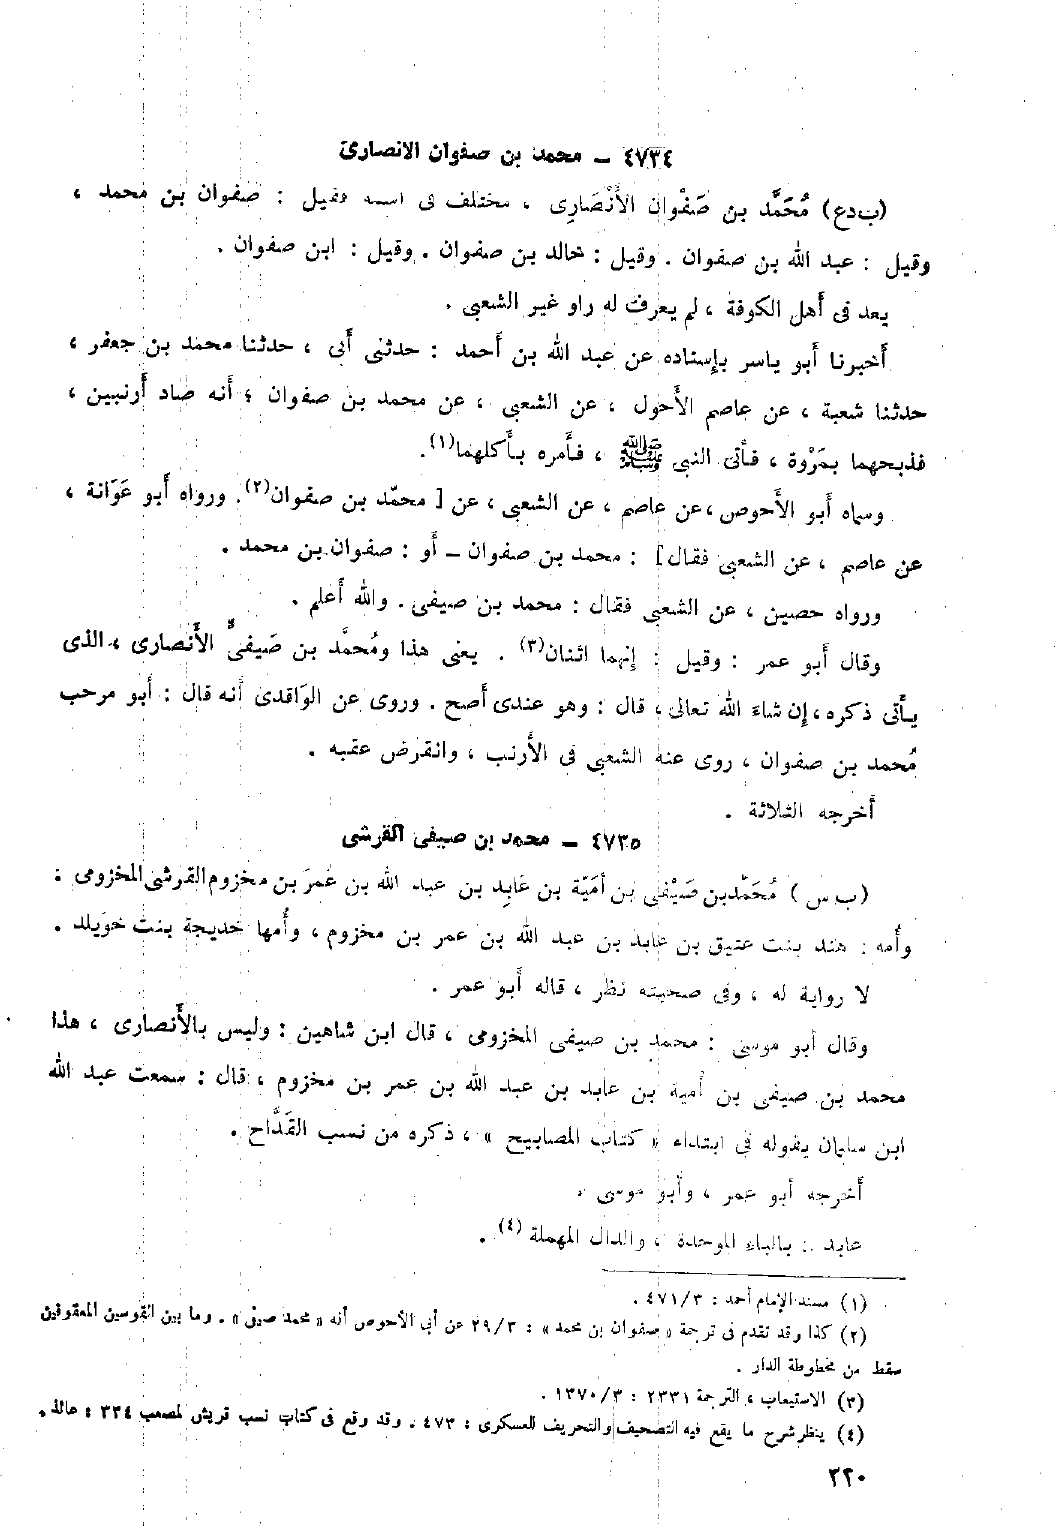 ٤٧٣٤ – محمد بن صفوان الانصارى
(ب د ع) مُحَمَّد بن صَفْوان الأَنْصَارِى ، مختلف فى اسمه فقيل : صفوان بن محمد ،
وقيل : عبد الله بن صفوان . وقيل : خالد بن صفوان . وقيل : ابن صفوان .
يعد فى أهل الكوفة ، لم يعرف له راو غير الشعبى .
أخبرنا أبو ياسر بإسناده عن عبد الله بن أحمد : حدثنى أبى ، حدثنا محمد بن جعفر ،
حدثنا شعبة ، عن عاصم الأحول ، عن الشعبى ، عن محمد بن صفوان ؛ أنه صاد أرنبين ،
فذبحهما بمَرْوة ، فأتى النبى ﷺ ، فأمره بأكلهما(١).
وسماه أبو الأحوص ، عن عاصم ، عن الشعبى ، عن [ محمّد بن صفوان(٢). ورواه أبو عَوَانة ،
عن عاصم ، عن الشعبى فقال] : محمد بن صفوان – أو : صفوان بن محمد .
ورواه حصين ، عن الشعبى فقال : محمد بن صيفى . والله أعلم .
وقال أبو عمر : وقيل : إنهما اثنان(٣) . يعنى هذا ومُحمَّد بن صَيفىٍّ الأَنصارى ، الذى
يأتى ذكره ، إن شاء الله تعالى ، قال : وهو عندى أصح . وروى عن الوَاقدى أنه قال : أبو مرحب
مُحمد بن صفوان ، روى عنه الشعبى فى الأرنب ، وانقرض عقبه .
أخرجه الثلاثة .
٤٧٣٥ – محمد بن صيفى القرشى
(ب س) مُحَمَّد بن صَيْفى بن أمَيّة بن عَابِد بن عبد الله بن عُمَر بن مخزوم القرشى المخزومى :
وأُمه : هند بنت عتيق بن عابد بن عبد الله بن عمر بن مخزوم ، وأُمها خديجة بنت خوَيلد .
لا رواية له ، وفى صحبته نظر ، قاله أبو عمر .
وقال أبو موسى : محمد بن صيفى المخزومى ، قال ابن شاهين : وليس بالأَنصارى ، هذا
محمد بن صيفى بن أُمية بن عابد بن عبد الله بن عمر بن مخزوم ، قال : سمعت عبد الله
ابن سليمان يقوله فى ابتداء « كتاب المصابيح » ، ذكره من نسب القَدَّاح .
أخرجه أبو عمر ، وأبو موسى .
عابد : بالباء الموحدة ، والدال المهملة (٤) .
(١) مسند الإمام أحمد : ٤٧١/٣ .
(٢) كذا وقد تقدم فى ترجمة « صفوان بن محمد » : ٢٩/٣ عن أبى الأحوص أنه « محمد صيفى » . وما بين القوسين المعقوفين
سقط من مخطوطة الدار .
(٣) الاستيعاب ، الترجمة ٢٣٣١ : ١٣٧٠/٣ .
(٤) ينظر شرح ما يقع فيه التصحيف والتحريف للعسكرى : ٤٧٣ . وقد وقع فى كتاب نسب قريش لمصعب ٣٣٤ : عائذ .
٣٢٠